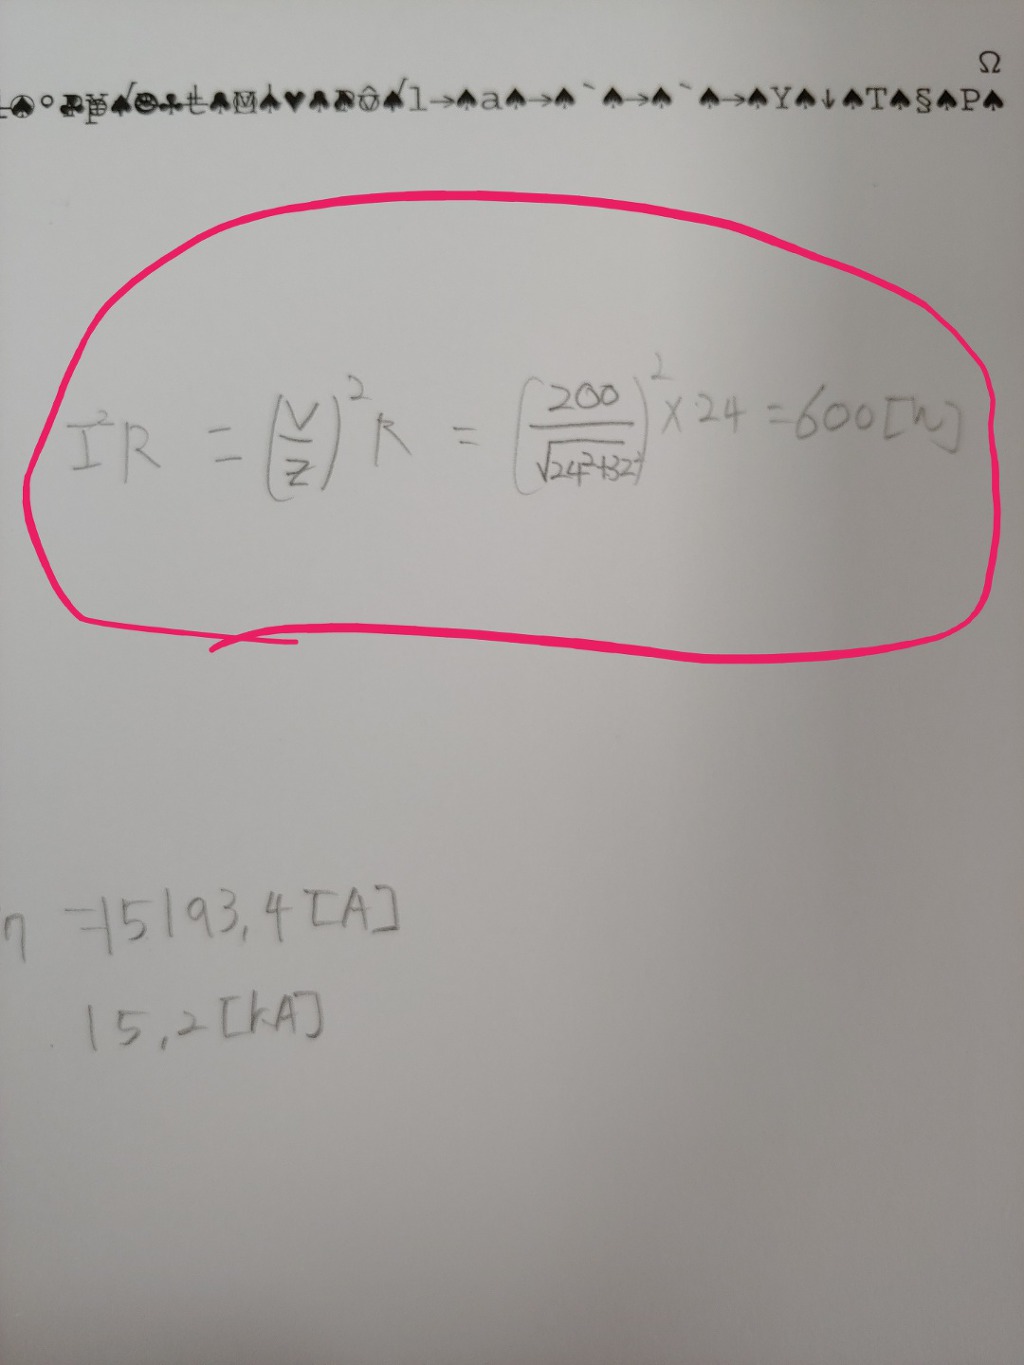 Ω
l→♠a♠→♠`♠→♠`♠→♠Y♠↓♠T♠§♠P♠
I²R = (V/Z)²R = (200/√24²+32²)² × 24 = 600 [W]
η =15193,4 [A]
15,2 [kA]